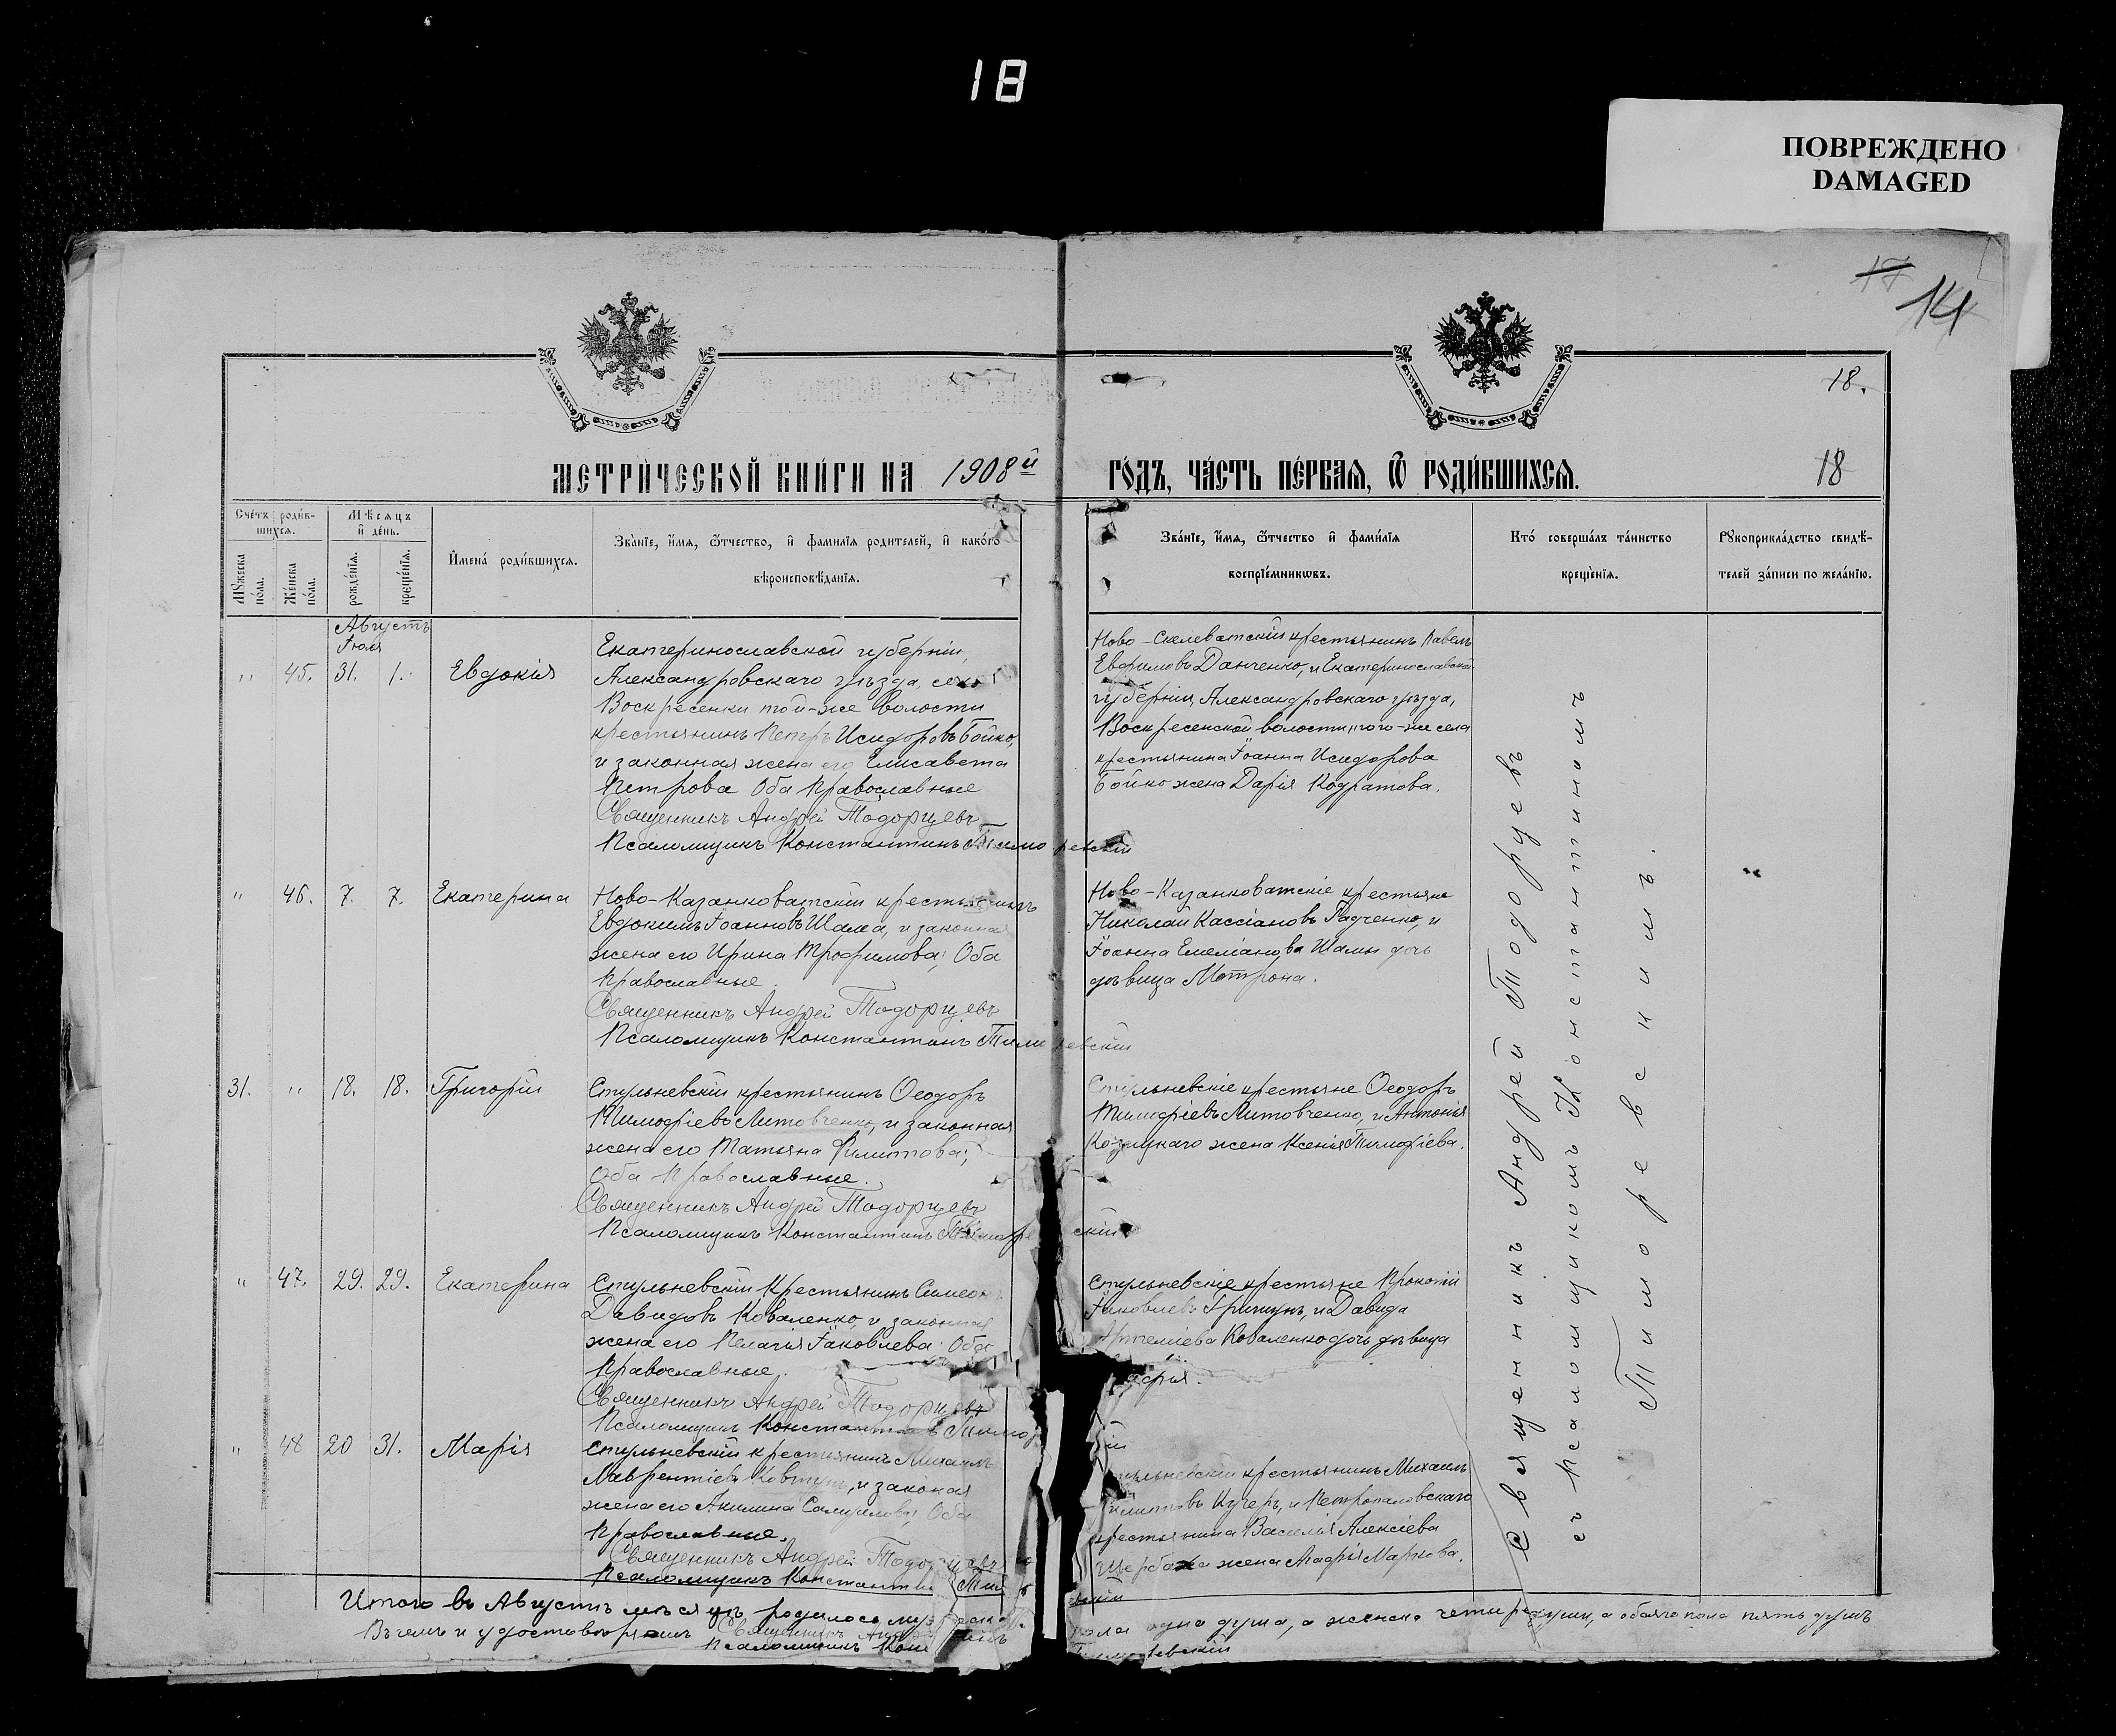 18
ПОВРЕЖДЕНО
DAMAGED
17
14
18.
МЕТРИЧЕСКОЙ КНИГИ НА 1908й
ГОДЪ, ЧАСТЬ ПЕРВАЯ, Ѿ РОДИВШИХСЯ.
18
Счетъ родив-
шихся.
Мѣсяцъ
и день.
Мужеска
пола.
Женска
пола.
рожденія.
крещенія.
Имена родившихся.
Званіе, имя, ѿтчество, и фамилія родителей, и какого
вѣроисповѣданія.
Званіе, имя, ѿтчество и фамилія
воспріемникωвъ.
Кто совершалъ таинство
крещенія.
Рукоприкладство свидѣ-
телей записи по желанію.
Августъ
Іюля
" 45. 31. 1. Евдокія
Екатеринославской губерніи,
Александровскаго уѣзда, села
Воскресенки той-же волости
крестьянинъ Петръ Исидоровъ Бойко,
и законная жена его Елисавета
Петрова Оба Православные
Священникъ Андрей Тодорцевъ
Псаломщикъ Константинъ Тиморевскій
Ново-Скелеватскій крестьянинъ Павелъ
Евфимовъ Данченко, и Екатеринославской
губерніи, Александровскаго уѣзда,
Воскресенской волости, того-же села
крестьянина Іоанна Исидорова
Бойко жена Дарія Кодратова.
" 46. 7. 7. Екатерина
Ново-Казанковатскій крестьянинъ
Евдокимъ Іоанновъ Шама, и законная
жена его Ирина Трофимова; Оба
Православные.
Священникъ Андрей Тодорцевъ
Псаломщикъ Константинъ Тиморевскій
Ново-Казанковатскіе крестьяне
Николай Кассіановъ Радченко, и
Іоанна Емеліанова Шамы дочь
дѣвица Матрона.
31. " 18. 18. Григорій
Стульневскій крестьянинъ Ѳеодоръ
Тимофіевъ Литовченко, и законная
жена его Татьяна Филиппова;
Оба Православные.
Священникъ Андрей Тодорцевъ
Псаломщикъ Константинъ Тиморевскій
Стульневскіе крестьяне Ѳеодоръ
Тимофіевъ Литовченко, и Антонія
Козицкаго жена Ксенія Тимофіева.
" 47. 29. 29. Екатерина
Стульневскій Крестьянинъ Симеонъ
Давидовъ Коваленко, и законная
жена его Пелагія Іаковлева Оба
Православные.
Священникъ Андрей Тодорцевъ
Псаломщикъ Константинъ
Стульневскіе крестьяне Прокопій
Іаковлевъ Грищунъ, и Давида
Коваленко дочь дѣвица
" 48 20 31. Марія
Стульневскій крестьянинъ Михаилъ
Лаврентіевъ Ковтунъ, и законая
жена его Акилина Самуилова; Оба
Православные.
Священникъ Андрей Тодорцевъ
Псаломщикъ Константинъ
крестьянинъ Михаилъ
Кучеръ, и Петропаловскаго
крестьянина Василія Алексіева
Щербака жена Маркова.
Священникъ Андрей Тодорцевъ
съ Псаломщикомъ Константиномъ
Тиморевскимъ.
Итого въ Августѣ мѣсяцѣ родилось мужеска пола одна душа, а женска четыре души, а обаего пола пять душъ
Въ чемъ и удостовѣряемъ Священникъ
Псаломщикъ Тиморевскій